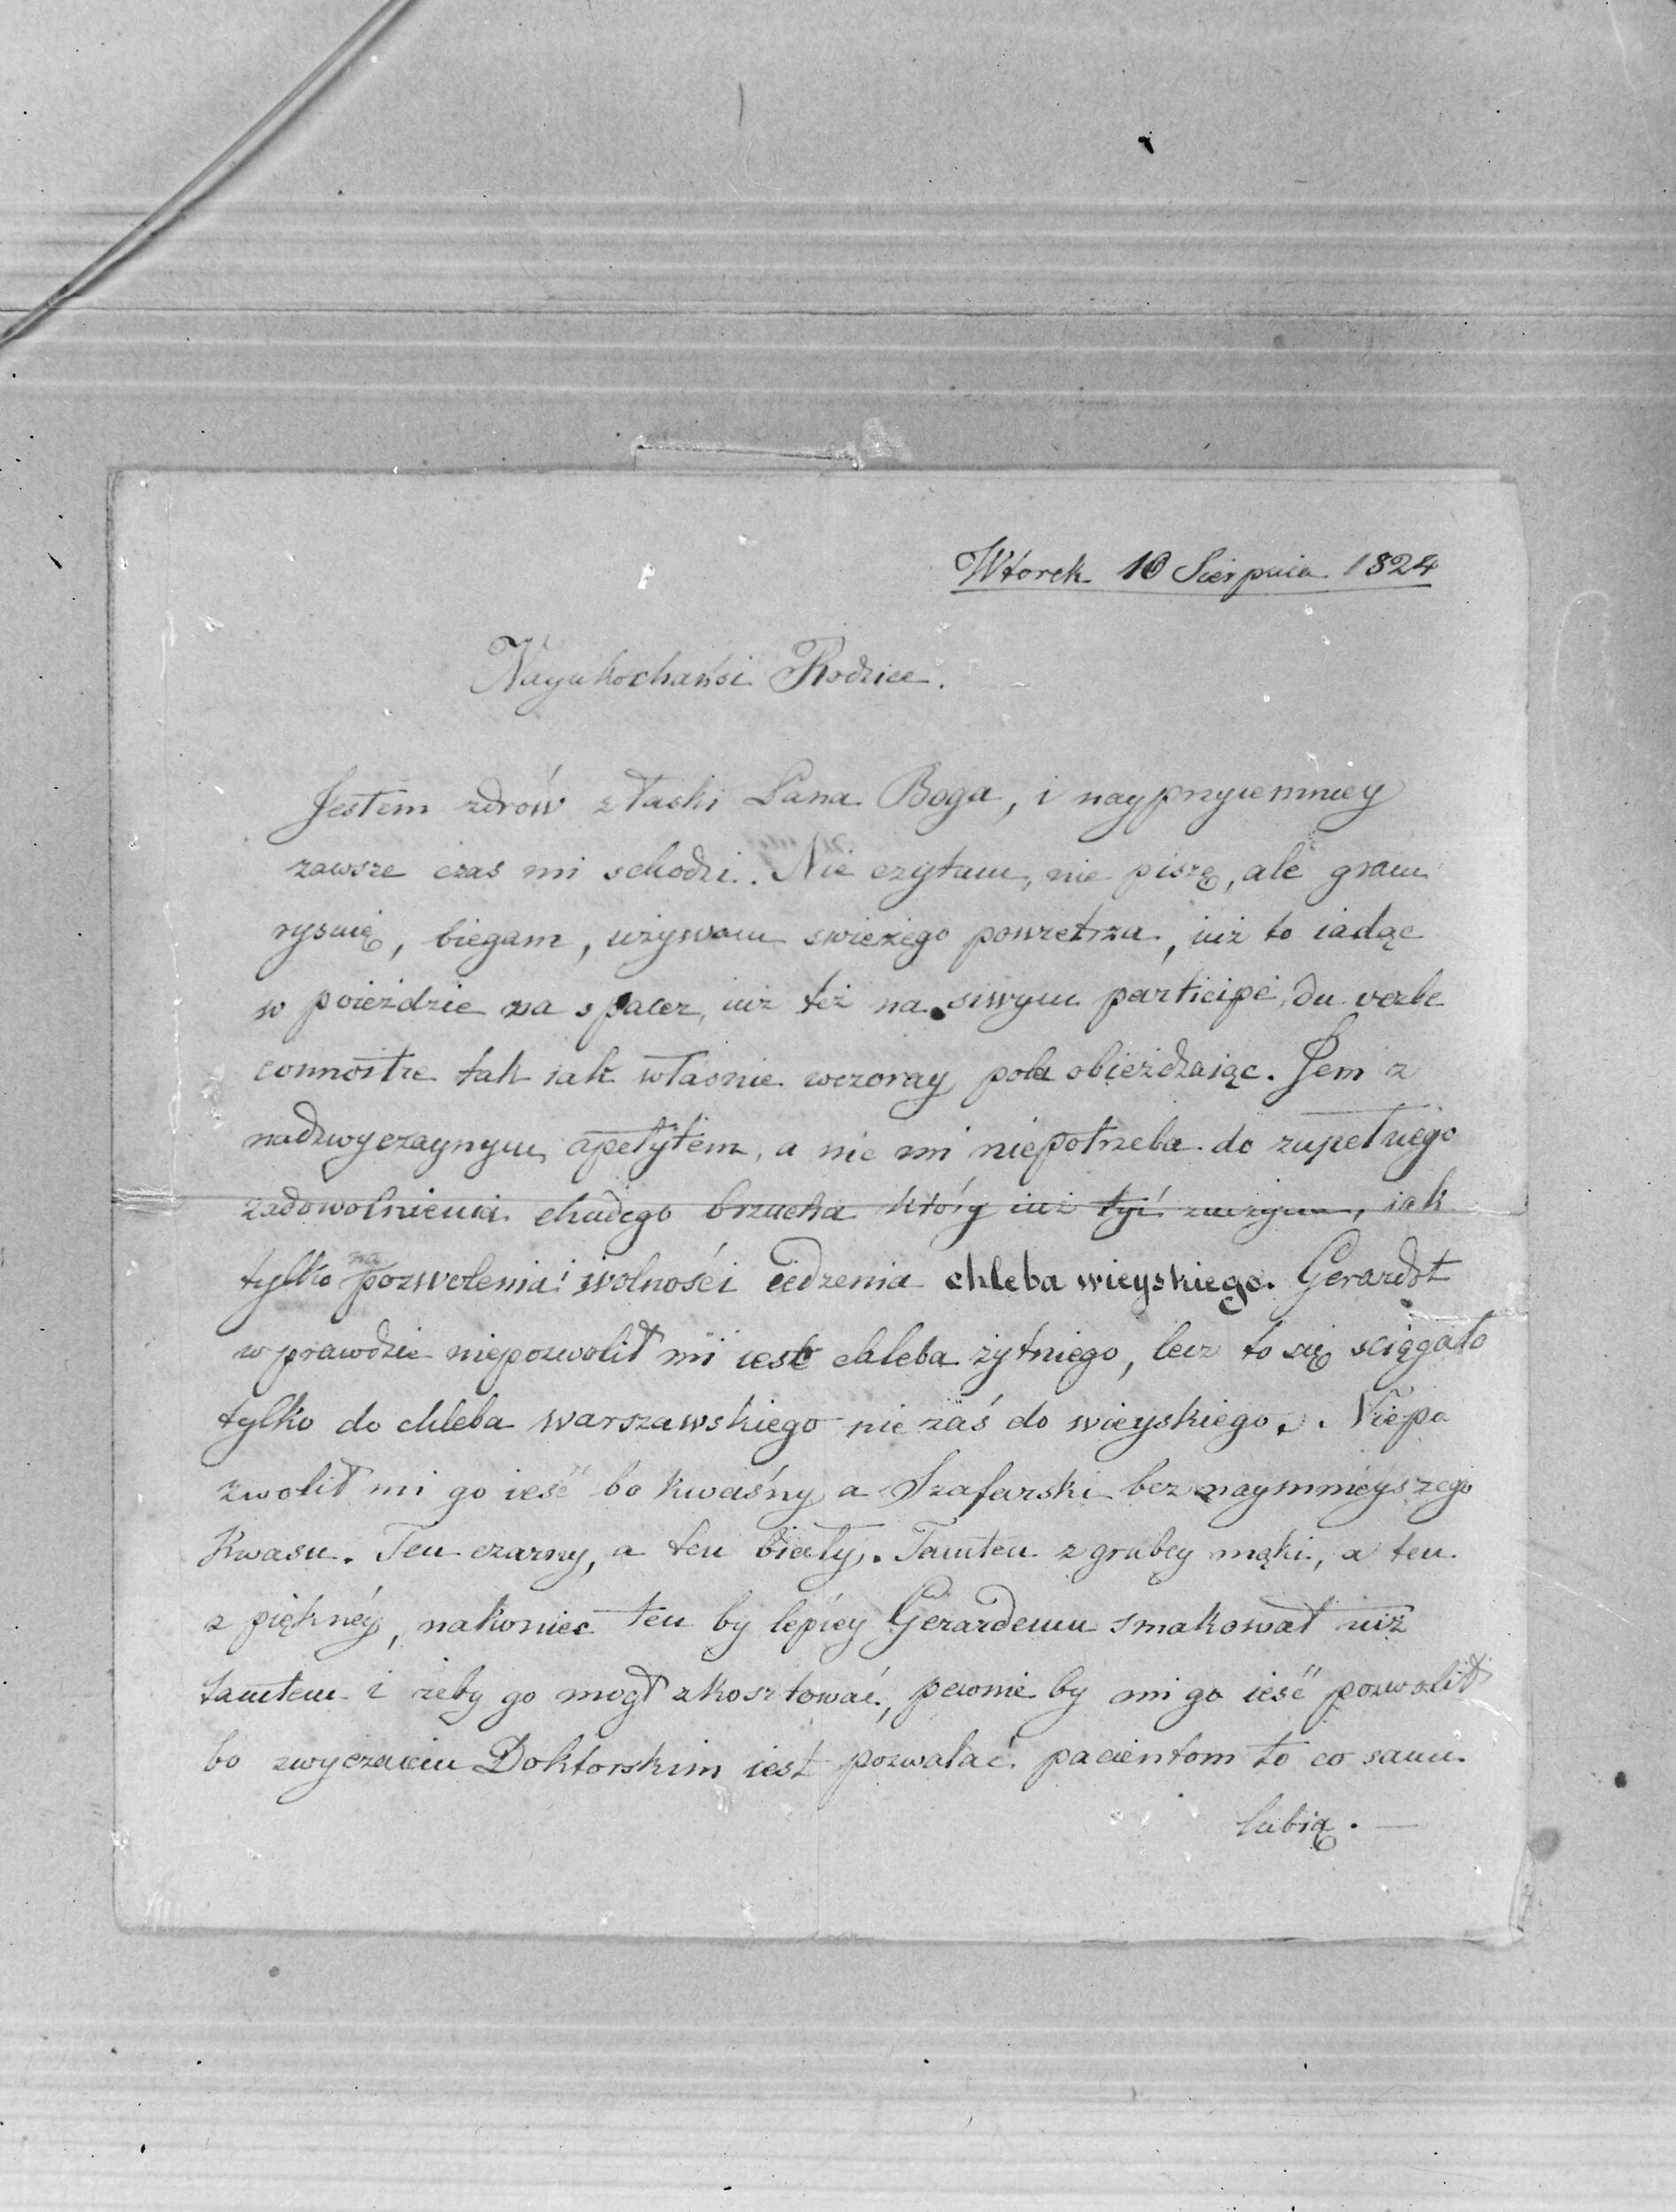 Wtorek 10 Sierpnia 1824
Nayukochańsi Rodzice.
Jestem zdrów z łaski Pana Boga, i nayprzyiemniey
zawsze czas mi schodzi. Nie czytam, nie piszę, ale gram
rysuię, biegam, używam swieżego powietrza, iuż to iadąc
w poieździe na spacer, iuż też na siwym participe du verbe
connoître tak iak własnie wczoray pola obieżdzaiąc. Jem z
nadzwyczaynym apetytem, a nic mi niepotrzeba do zupełnego
zadowolnienia chudego brzucha który iuż tyć zaczyna, iak
tylko na pozwolenia i wolności iedzenia chleba wieyskiego. Gerardot
w prawdzie niepozwolił mi iesć chleba żytniego, lecz to się sciągało
tylko do chleba warszawskiego nie zaś do wieyskiego. Niepo
zwolił mi go ieść bo kwaśny a Szafarski bez naymnieyszego
kwasu. Ten czarny, a ten biały. Tamten z grubey mąki, a ten
z piękney, nakoniec ten by lepiey Gerardemu smakował niż
tamten i żeby go mogł zkosztować, pewnie by mi go ieść pozwolił
bo zwyczaiem Doktorskim iest pozwalać pacientom to co sami
lubią. —